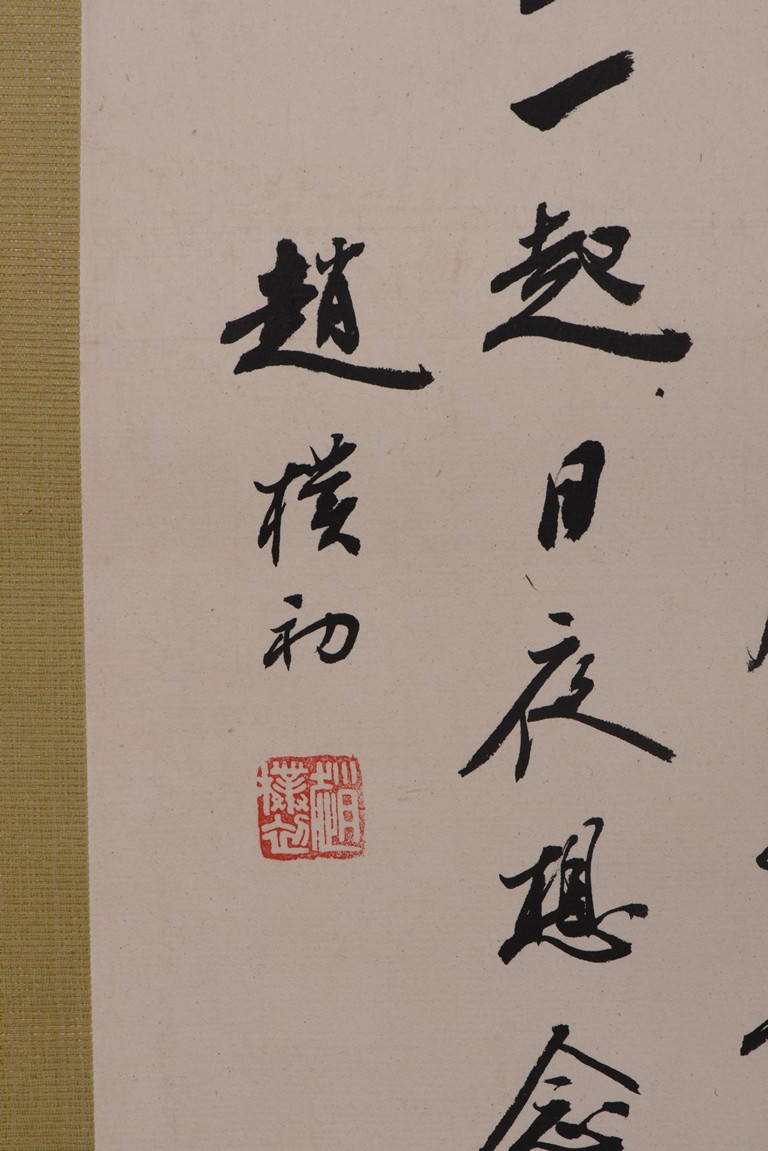 一起日夜想念
趙樸初
趙樸初